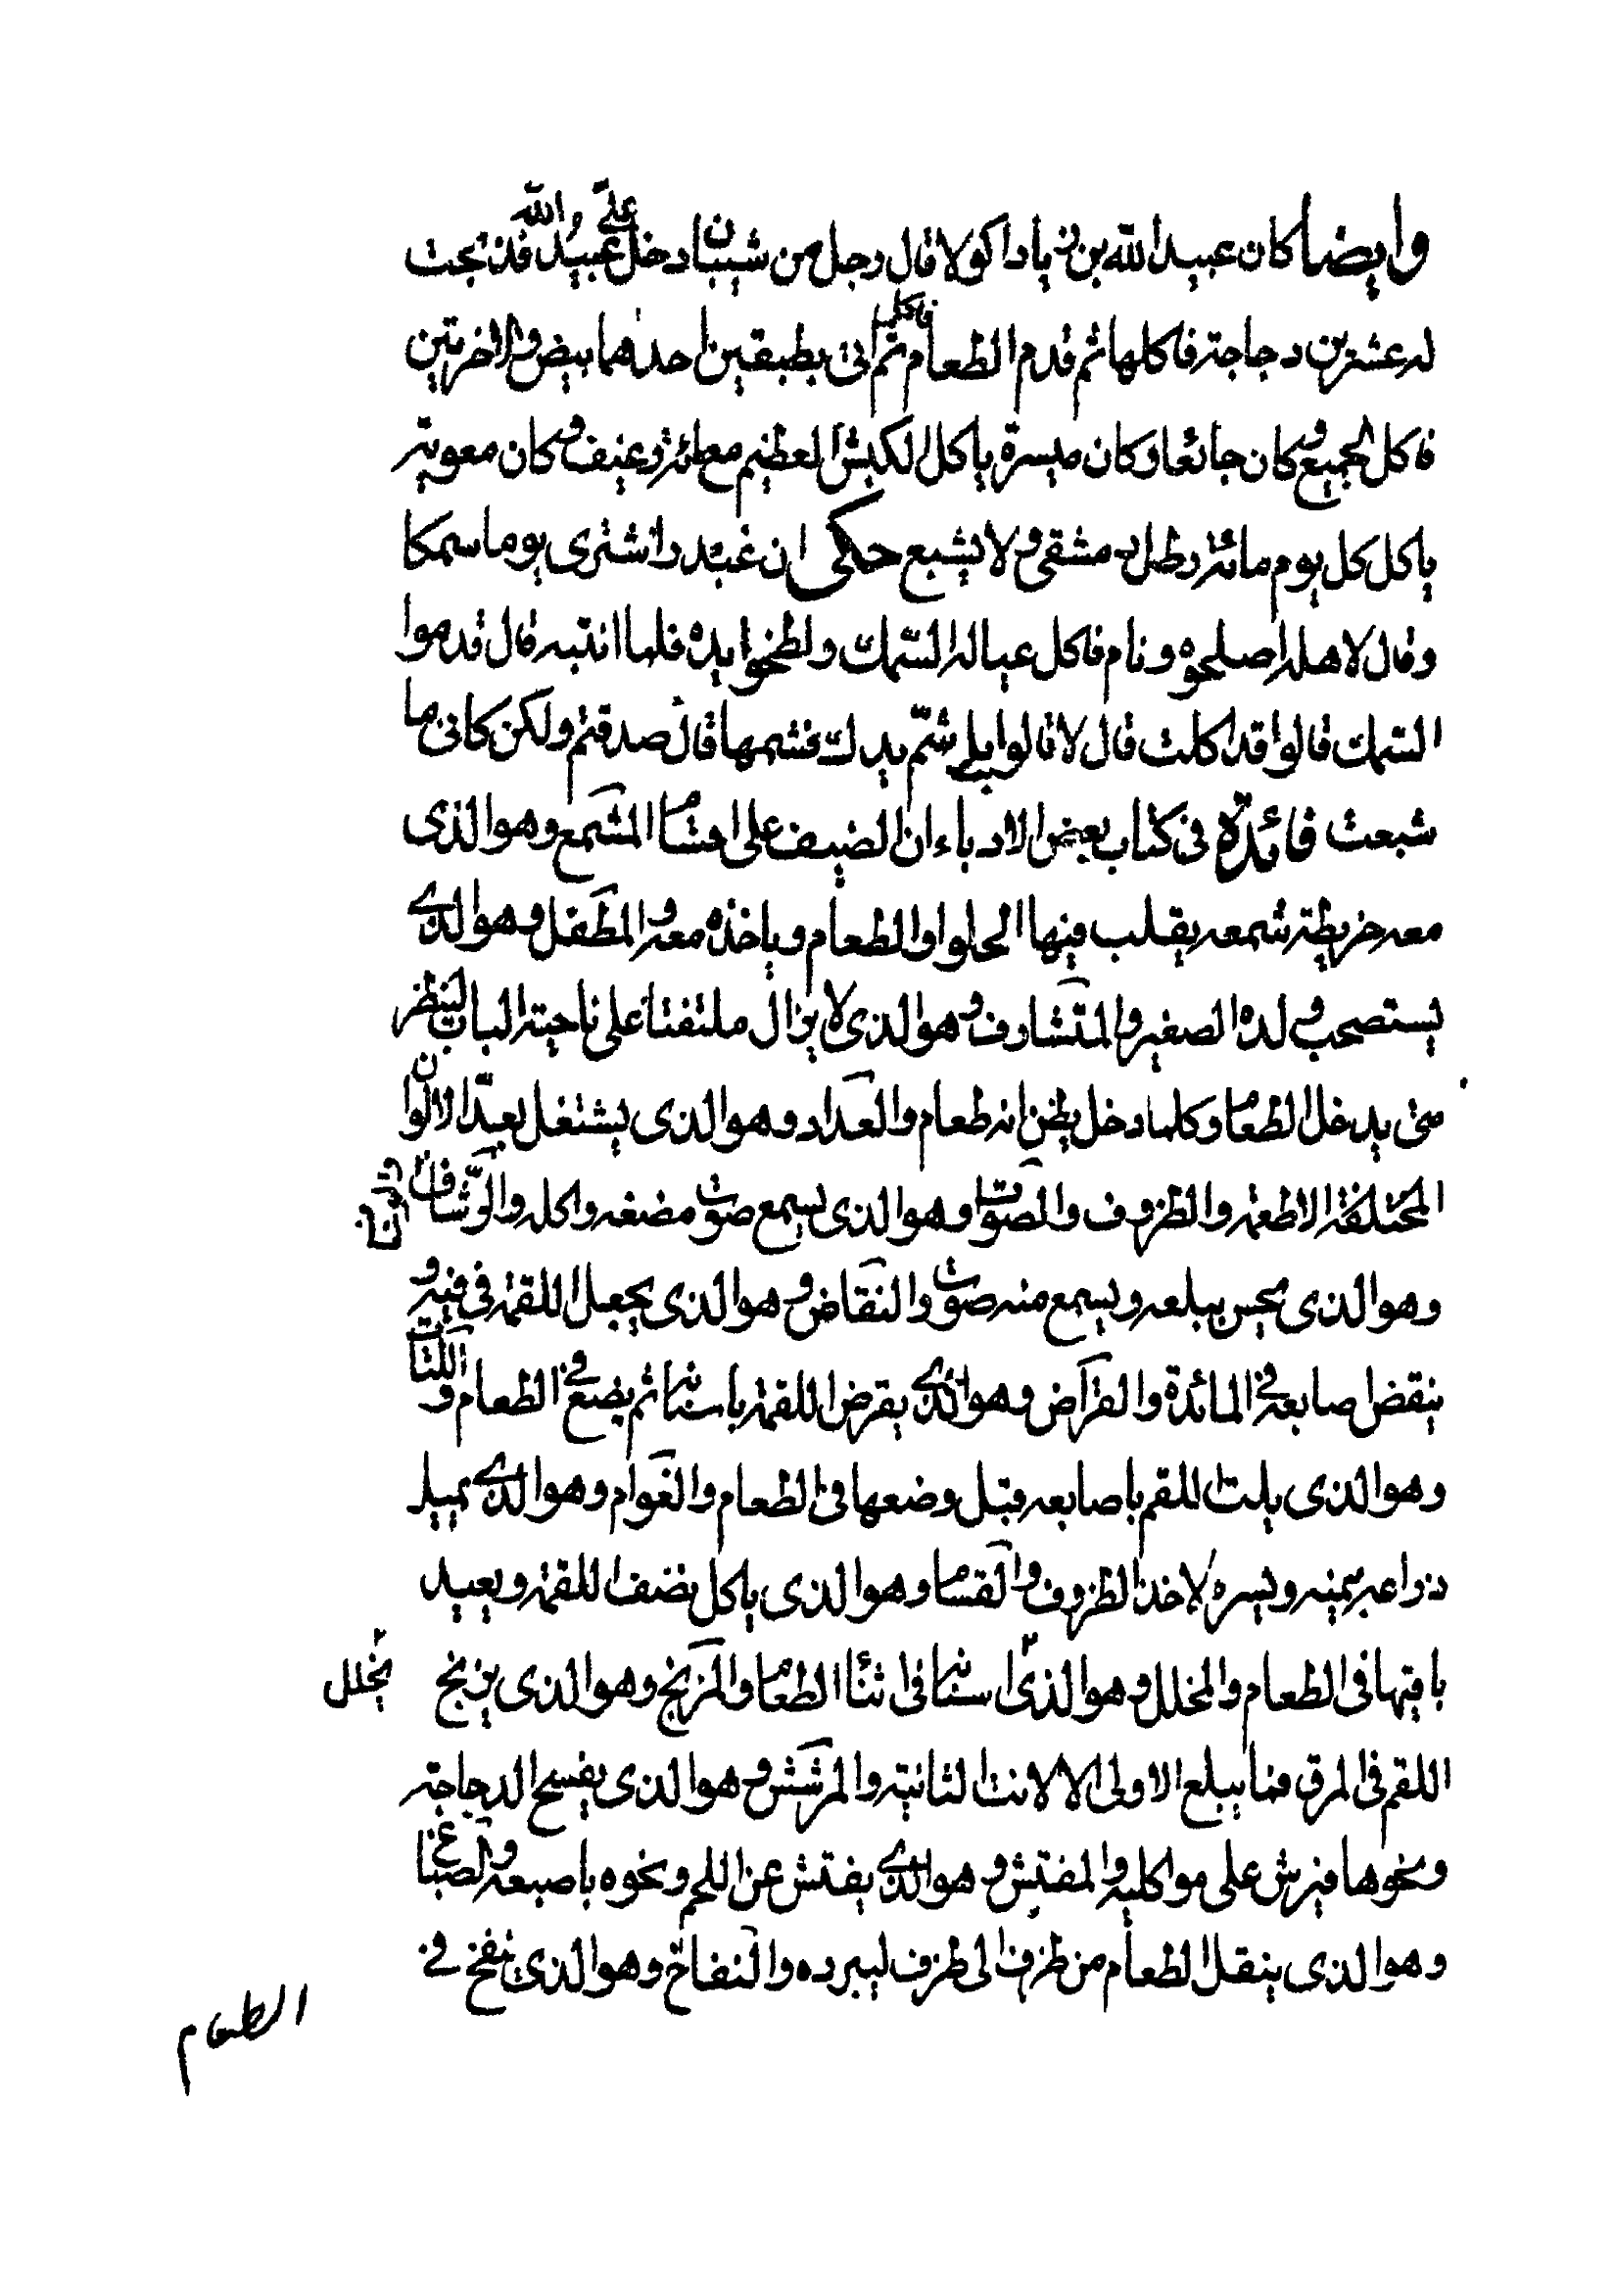 وايضا كان عبيد الله بن زياد اكولا قال رجل من شيبان دخل على عبيد الله فذبحت
له عشرين دجاجة فاكلها ثم قدم الطعام فاكل ثم اتى بطبقين احدهما بيض والاخر تين
فاكل الجميع وكان جائعا وكان ميسرة ياكل الكبش العظيم مع مائة رغيف وكان معوية
ياكل كل يوم مائة رطل دمشقى ولا يشبع حكى ان اشترى يوما سمكا
وقال لاهله اصلحوه ونام فاكل عياله السمك ولطخوا يده فلما انتبه قال قدموا
السمك قالوا قد اكلت قال لا قالوا بلى شم يدك فشمها قال صدقتم ولكن كانى ما
شبعت فائدة فى كتاب بعض الادباء ان الضيف على اقسام المشمع وهو الذى
معه خريطة شمعه يقلب فيها الحلوا والطعام وياخذه معه والمطفل وهو الذى
يستصحب ولده الصغير والمتشارف وهو الذى لا يزال ملتفتا على ناحية الباب لينظر
متى يدخل الطعام وكلما دخل يظن انه طعام والعداد وهو الذى يشتغل بعد الالوان
المختلفة الاطعمة والظروف والصوات وهو الذى يسمع صوت مضغه واكله والرشاف
وهو الذى يحس ببلعه ويسمع منه صوت والنفاض وهو الذى يجعل اللقمة فى فيه و
ينفض اصابعه فى المائدة والقراض وهو الذى يقرض اللقمة باسنانه ثم يضع فى الطعام و اللتات
وهو الذى يلت اللقم باصابعه قبل وضعها فى الطعام والعوام وهو الذى يميل
ذراعيه يمينه ويسره لاخذ الظروف والقسام وهو الذى ياكل نصف اللقمة ويعيد
باقيها فى الطعام والمخلل وهو الذى اسنانه فى اثناء الطعام والمزنج وهو الذى يزنج يخلل
اللقم فى المرق فما يبلع الاولى الا لانت الثانية والمرشش وهو الذى يفسخ الدجاجة
ونحوها فيرش على مواكليه والمفتش وهو الذى يفتش عن اللحم ونحوه باصبعه والصباغ
وهو الذى ينقل الطعام من ظرف الى ظرف ليبرده والنفاخ وهو الذى ينفخ فى
الطعام